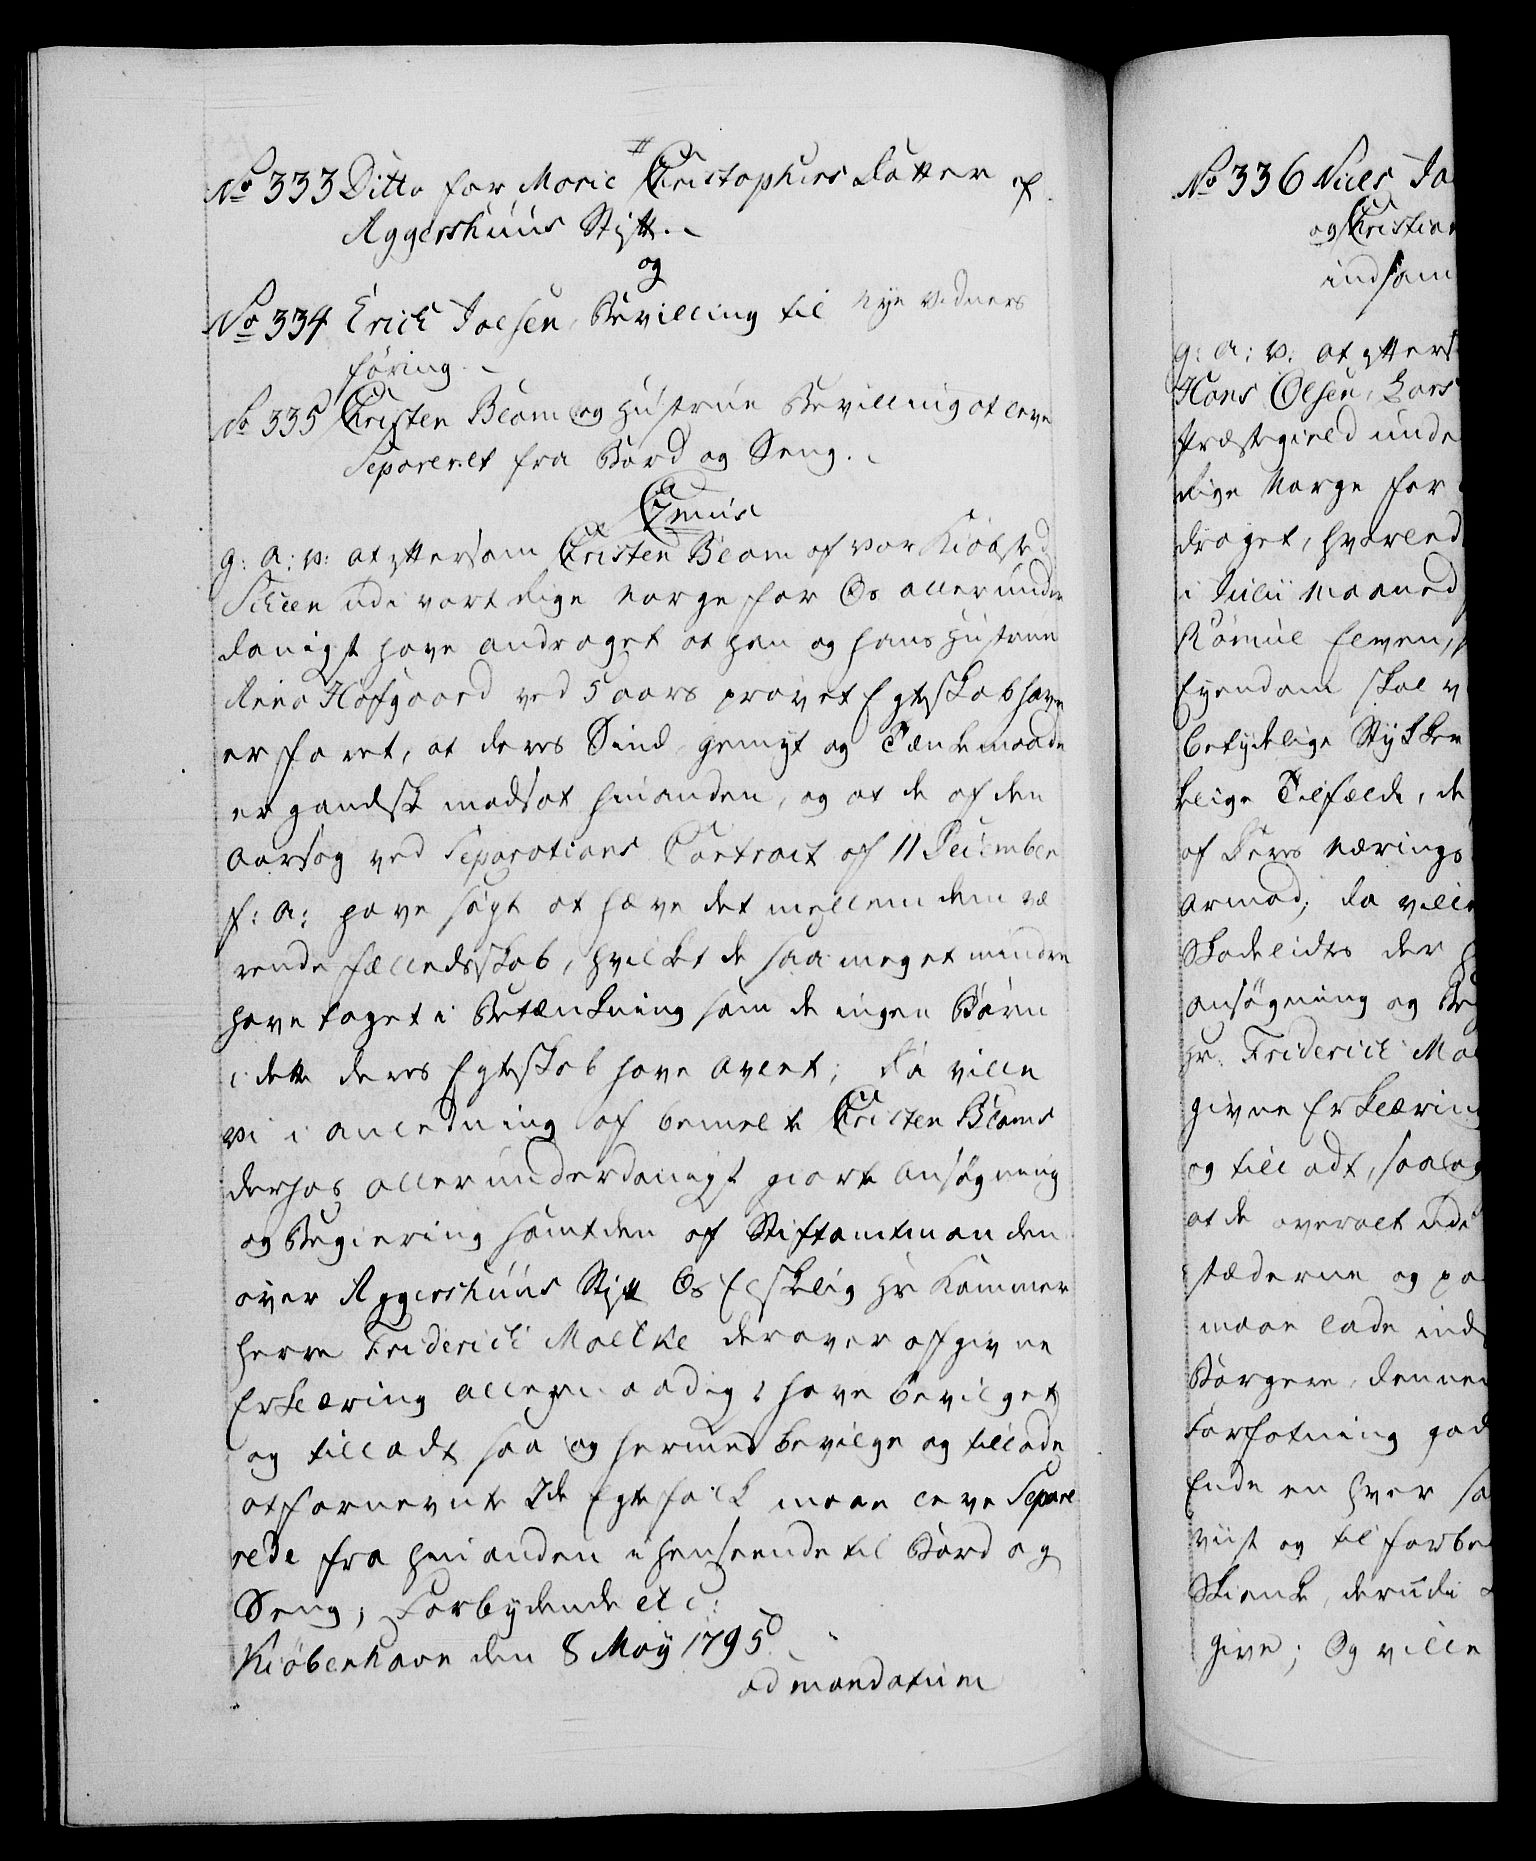 No 333 Ditto for Marie Christophers Datter af
Aggershuus Stift.
og
No 334 Erich Joelsen, Bevilling til nye Vidners
føring.
No 335 Christen Blom og Hustrue Bevilling at leve
Separeret fra Bord og Seng.
C 7mus
g: a: v: at eftersom Christen Blom af vor Kiøbsted
Scheen udi vort Rige Norge for Os allerunder
danigst have andraget at han og hans Hustrue
Anna Hofgaard ved 5 aars prøvet Egteskab have
erfaret, at deres Sind, gemyt og Tænkemaade
er gandske modsat hinanden, og at de af den
Aarsag ved Separations Contract af 11 December
f: a: have søgt at hæve det mellem dem væ
rende fælledsskab, hvilket de saa meget mindre
have taget i Betænkning som de ingen Børn
i dette deres Egteskab have avlet; Da ville
vi i anledning af bemelte Christen Bloms
derhos allerunderdanigst giorte Ansøgning
og Begiering samt den af Stiftamtmanden
over Aggershuus Stift Os Elskelig Hr Kammer
herre Friderich Moltke derover afgivne
Erklæring allernaadigst have bevilget
og tilladt saa og hermed bevilge og tillade
at fornevnte 2de Egtefolk maae leve Separe
rede fra hinanden i henseende til Bord og
Seng; Forbydende etc:
Kiøbenhavn den 8 May 1795
ad mandatum
No 336 Niels Jo
og Christian
indsam
g: a: v: at efters
Hans Olsen, Lars
Præstegield unde
Rige Norge for
draget, hvorled
i Julii Maaned
Eyendom skal v
betydelige Stykker
kelige Tilfælde, de
af deres Nærings
Armod; da ville
Skadelidte der
ansøgning og Be
Hr. Friderich Mo
givne Erklæring
og tilladt, saalog
at de overalt udi
stæderne og pa
maae lade ind
Borgere, denne
Forfatning god
Ende en hver sa
viist og til forbe
Skienk, derudi
give; Og ville